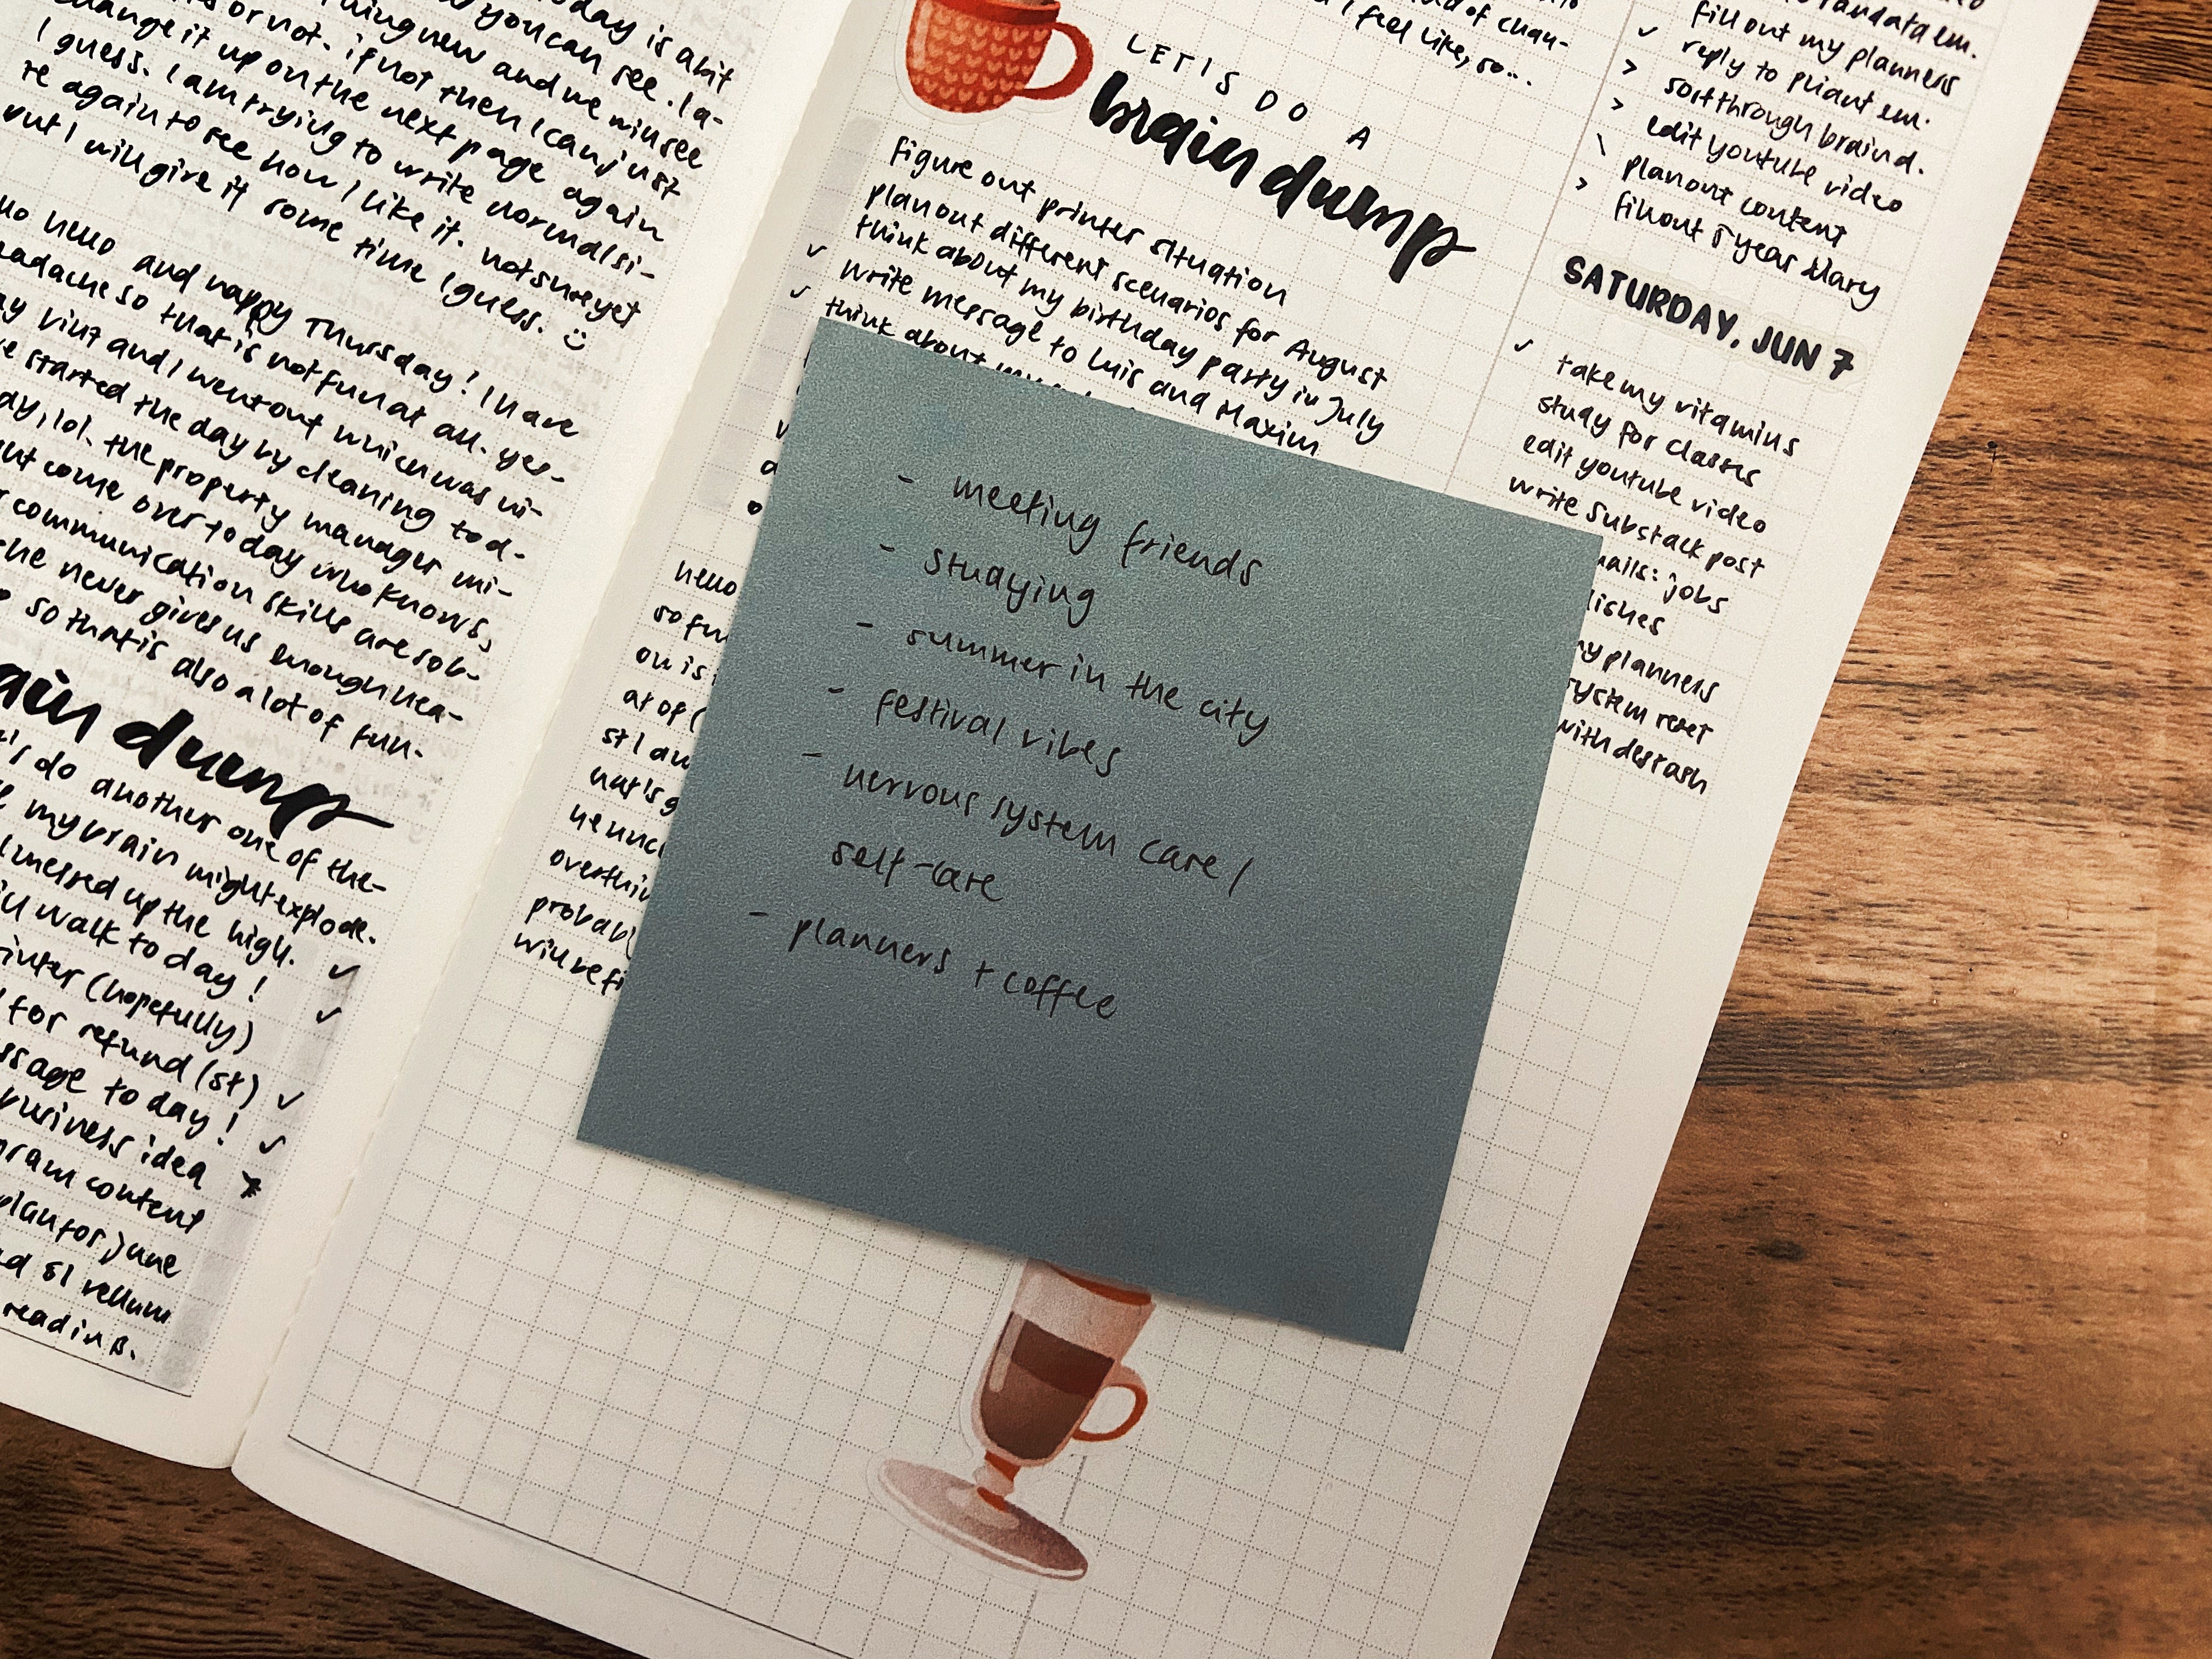 day is a bit
thing new and we min see
as you can see. I a-
s or not. if not then I can just
change it up on the next page again
I guess. I am trying to write normalsi-
re again to see how I like it. not sure yet
but I will give it some time I guess. :)
hello and happy Thursday! I have
headache so that is not fun at all. yes-
and I went out which was ni-
started the day by cleaning tod-
ay, lol. the property manager mi-
ght come over today who knows,
communication skills are sob-
she never gives us enough hea-
so that is also a lot of fun.
dump
let's do another one of the-
my brain might explode.
I messed up the high. ✓
walk today! ✓
printer (hopefully)
for refund (st) ✓
message today! ✓
business idea
content
plan for june
51 vellum
reading.
of chan-
I feel like, so...
LET'S DO A
brain dump
Figure out printer situation
plan out different scenarios for August
think about my birthday party in July
✓ write message to Luis and Maxim
✓ think about my
hello
so fu
on is
at of (
st I am
nat's g
he unc
overthin
probabl
will be fi
- meeting friends
- studying
- summer in the city
- festival vibes
- nervous system care /
self-care
- planners + coffee
fill out my planners
✓ reply to pliant em.
> sort through braind.
> edit youtube video
\ plan out content
> fill out 5 year diary
SATURDAY, JUN 7
✓ take my vitamins
study for classes
edit youtube video
write Substack post
ails: jobs
ishes
my planners
system reset
with destash